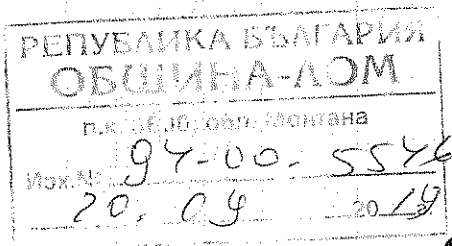 РЕПУБЛИКА БЪЛГАРИЯ
ОБЩИНА-ЛОМ
п.к. обл. Монтана
Изх.№ 94-00-
20. 20 19